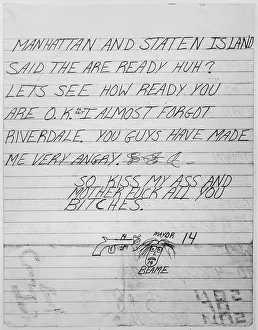 MANHATTAN AND STATEN ISLAND
SAID THE ARE READY HUH?
LETS SEE HOW READY YOU
ARE O.K. I ALMOST FORGOT
RIVERDALE. YOU GUYS HAVE MADE
ME VERY ANGRY.
SO KISS MY ASS AND
MOTHER FUCK ALL YOU
BITCHES.
MAYOR 14
BEAME